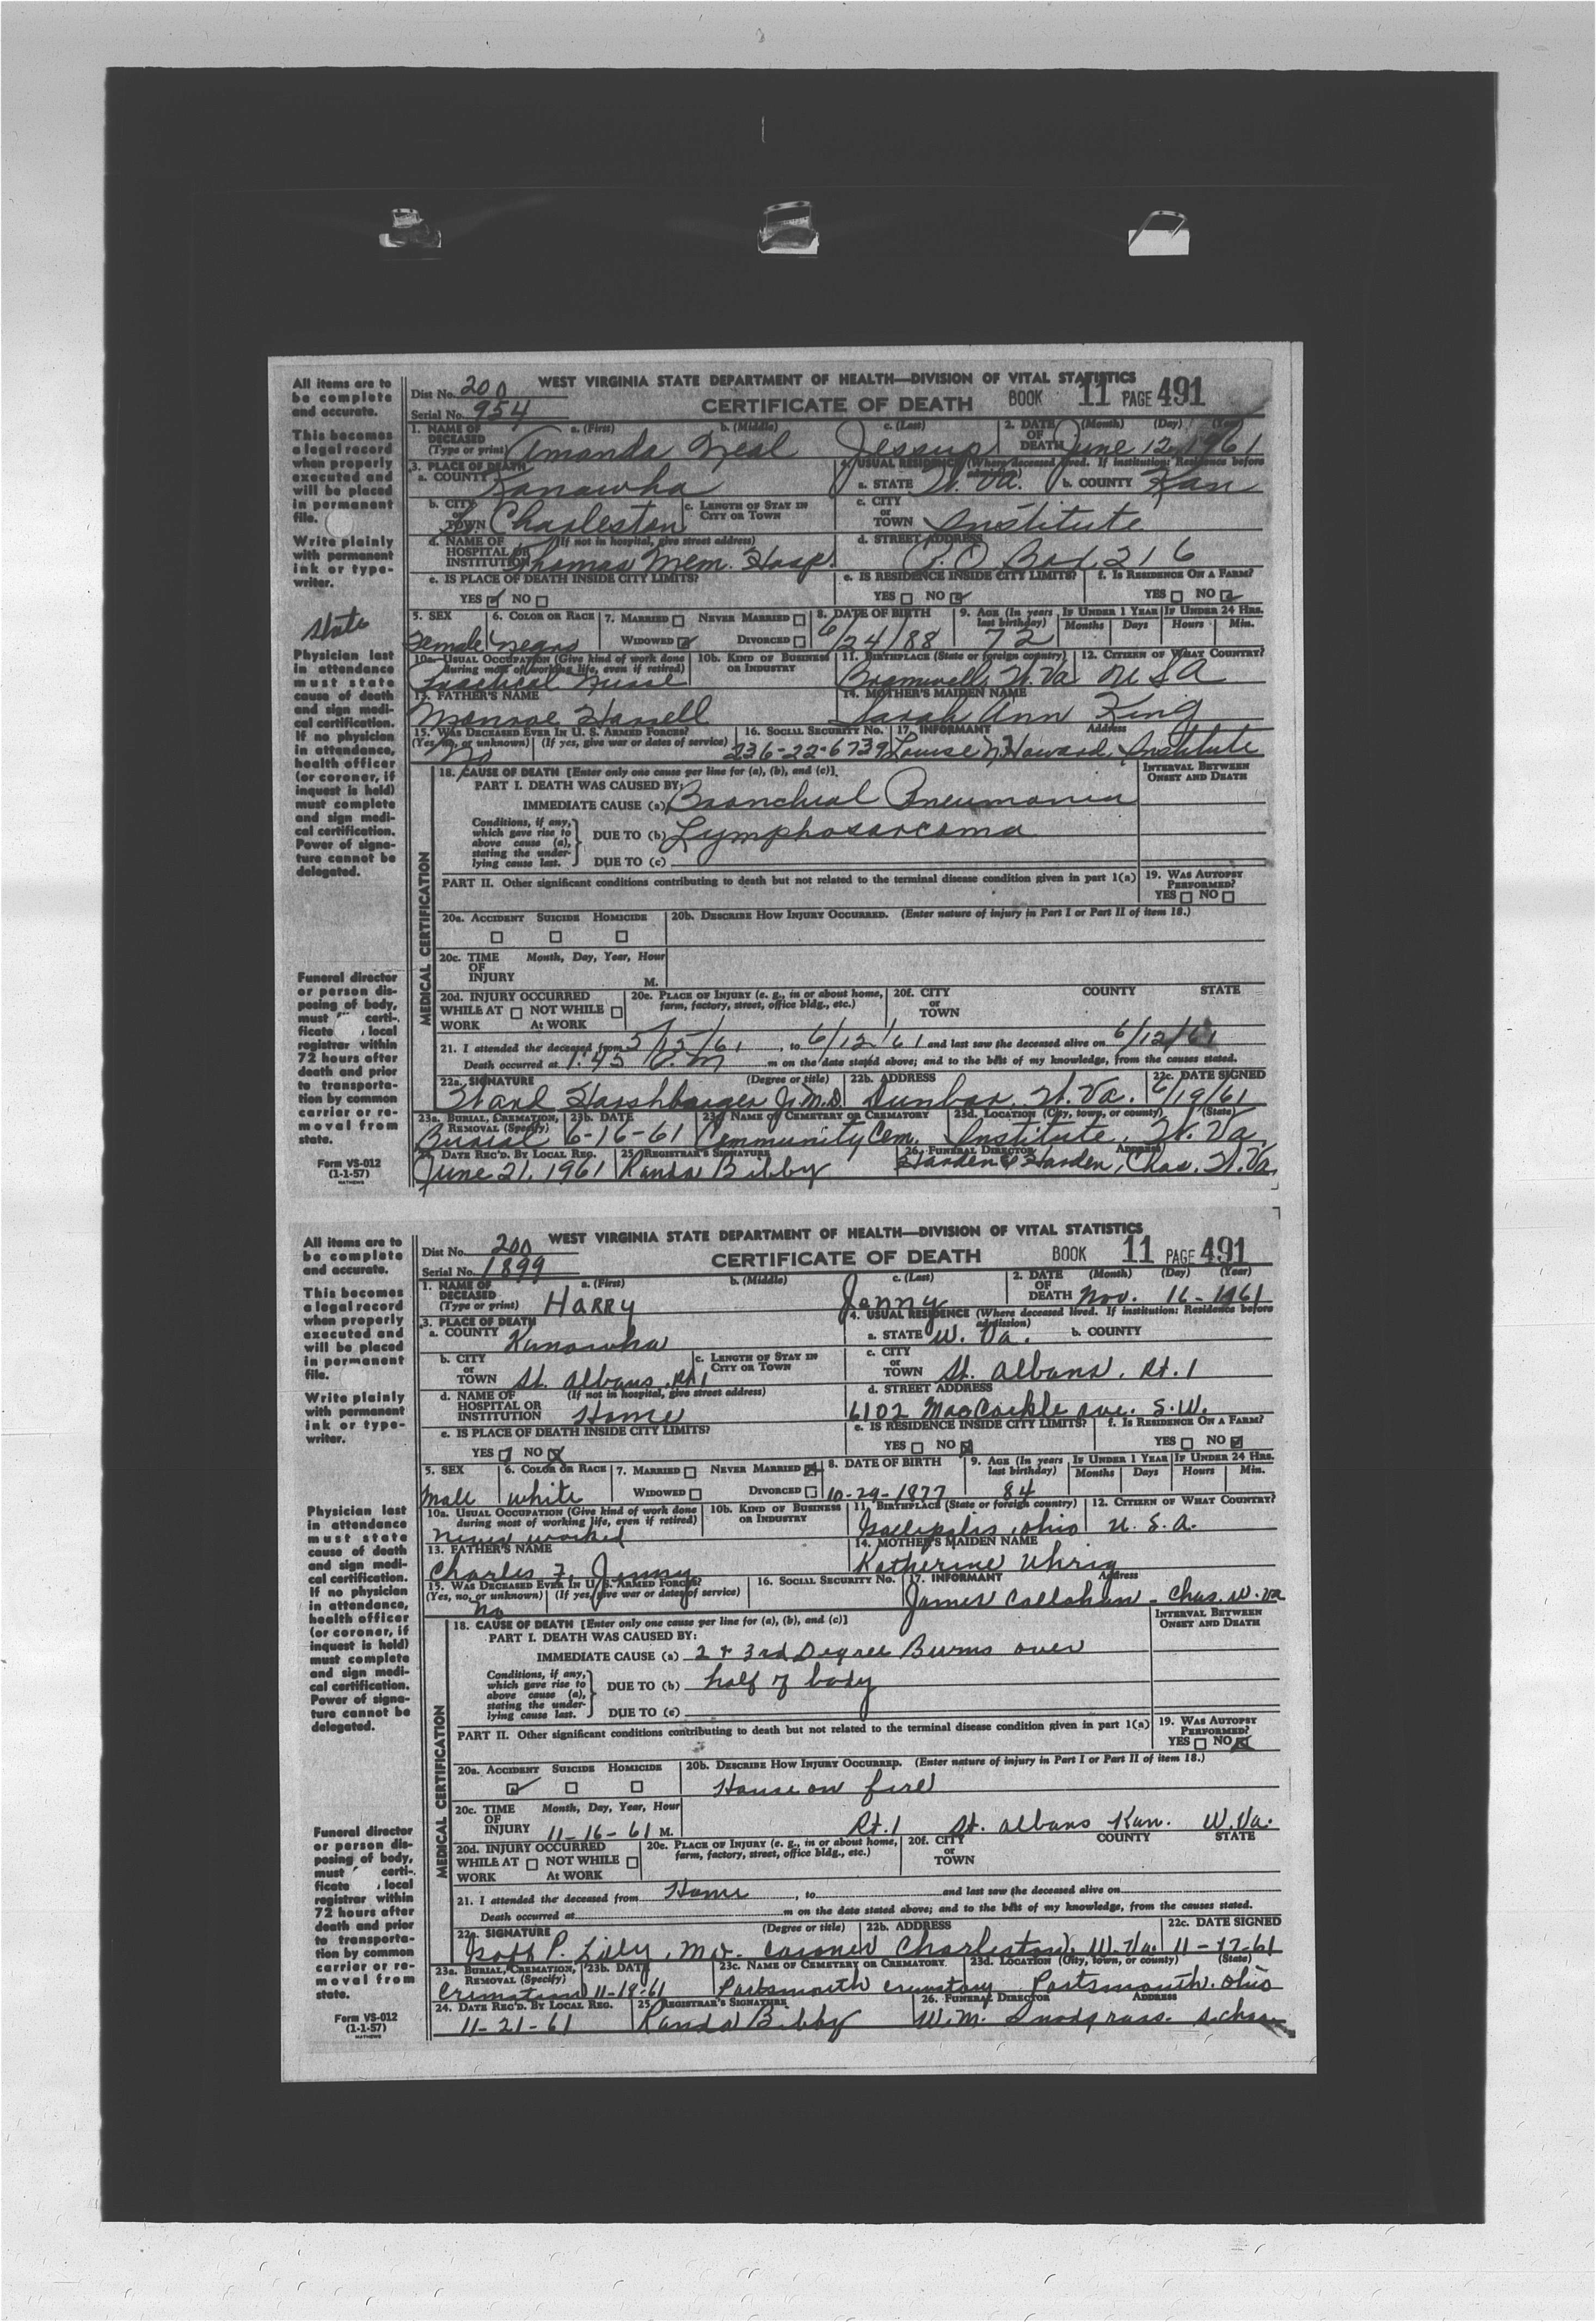 All items are to be complete and accurate.
This becomes a legal record when properly executed and will be placed in permanent file.
Write plainly with permanent ink or typewriter.
State
Physician last in attendance must state cause of death and sign medical certification. If no physician in attendance, health officer (or coroner, if inquest is held) must complete and sign medical certification. Power of signature cannot be delegated.
Funeral director or person disposing of body, must certificate local registrar within 72 hours after death and prior to transportation by common carrier or removal from state.
Form VS-012
(1-1-57)
MATHEWS
WEST VIRGINIA STATE DEPARTMENT OF HEALTH—DIVISION OF VITAL STATISTICS
Dist No. 200
Serial No. 954
CERTIFICATE OF DEATH BOOK 11 PAGE 491
1. NAME OF DECEASED (Type or print) a. (First) b. (Middle) c. (Last) Amanda Neal Jessup
2. DATE OF DEATH (Month) (Day) (Year) June 12, 1961
3. PLACE OF DEATH a. COUNTY Kanawha
4. USUAL RESIDENCE (Where deceased lived. If institution: Residence before admission) a. STATE W. Va. b. COUNTY Kan
b. CITY or TOWN So. Charleston c. LENGTH OF STAY IN CITY OR TOWN
c. CITY or TOWN Institute
d. NAME OF HOSPITAL OR INSTITUTION (If not in hospital, give street address) Thomas Mem. Hosp.
d. STREET ADDRESS P.O Box 216
e. IS PLACE OF DEATH INSIDE CITY LIMITS? YES NO
e. IS RESIDENCE INSIDE CITY LIMITS? YES NO f. IS RESIDENCE ON A FARM? YES NO
5. SEX Female 6. COLOR OR RACE Negro 7. MARRIED NEVER MARRIED WIDOWED DIVORCED 8. DATE OF BIRTH 6/24/88 9. AGE (In years last birthday) 72 IF UNDER 1 YEAR Months Days IF UNDER 24 HRS. Hours Min.
10a. USUAL OCCUPATION (Give kind of work done during most of working life, even if retired) Practical Nurse 10b. KIND OF BUSINESS OR INDUSTRY 11. BIRTHPLACE (State or foreign country) Bramwell, W. Va. 12. CITIZEN OF WHAT COUNTRY? USA
13. FATHER'S NAME Monroe Harrell 14. MOTHER'S MAIDEN NAME Sarah Ann King
15. WAS DECEASED EVER IN U. S. ARMED FORCES? (Yes, no, or unknown) (If yes, give war or dates of service) No 16. SOCIAL SECURITY NO. 236-22-6739 17. INFORMANT Address Louise N. Howard, Institute
MEDICAL CERTIFICATION
18. CAUSE OF DEATH [Enter only one cause per line for (a), (b), and (c)]. INTERVAL BETWEEN ONSET AND DEATH
PART I. DEATH WAS CAUSED BY:
IMMEDIATE CAUSE (a) Bronchial Pneumonia
Conditions, if any, which gave rise to above cause (a), stating the underlying cause last. DUE TO (b) Lymphosarcoma
DUE TO (c)
PART II. Other significant conditions contributing to death but not related to the terminal disease condition given in part 1(a) 19. WAS AUTOPSY PERFORMED? YES NO
20a. ACCIDENT SUICIDE HOMICIDE 20b. DESCRIBE HOW INJURY OCCURRED. (Enter nature of injury in Part I or Part II of item 18.)
20c. TIME OF INJURY Month, Day, Year, Hour M.
20d. INJURY OCCURRED WHILE AT WORK NOT WHILE AT WORK 20e. PLACE OF INJURY (e. g., in or about home, farm, factory, street, office bldg., etc.) 20f. CITY or TOWN COUNTY STATE
21. I attended the deceased from 5/15/61, to 6/12/61 and last saw the deceased alive on 6/12/61
Death occurred at 1:45 P.m m on the date stated above; and to the best of my knowledge, from the causes stated.
22a. SIGNATURE (Degree or title) Ward Harshbarger Jr. M.D 22b. ADDRESS Dunbar, W. Va. 22c. DATE SIGNED 6/19/61
23a. BURIAL, CREMATION, REMOVAL (Specify) Burial 23b. DATE 6-16-61 23c. NAME OF CEMETERY OR CREMATORY Community Cem. 23d. LOCATION (City, town, or county) (State) Institute, W. Va.
24. DATE REC'D. BY LOCAL REG. June 21, 1961 25. REGISTRAR'S SIGNATURE Randa Bibby 26. FUNERAL DIRECTOR Address Harden & Harden, Chas. W. Va.
All items are to be complete and accurate.
This becomes a legal record when properly executed and will be placed in permanent file.
Write plainly with permanent ink or typewriter.
Physician last in attendance must state cause of death and sign medical certification. If no physician in attendance, health officer (or coroner, if inquest is held) must complete and sign medical certification. Power of signature cannot be delegated.
Funeral director or person disposing of body, must certificate local registrar within 72 hours after death and prior to transportation by common carrier or removal from state.
Form VS-012
(1-1-57)
MATHEWS
WEST VIRGINIA STATE DEPARTMENT OF HEALTH—DIVISION OF VITAL STATISTICS
Dist No. 200
Serial No. 1899
CERTIFICATE OF DEATH BOOK 11 PAGE 491
1. NAME OF DECEASED (Type or print) a. (First) b. (Middle) c. (Last) HARRY Jenny
2. DATE OF DEATH (Month) (Day) (Year) Nov. 16-1961
3. PLACE OF DEATH a. COUNTY Kanawha
4. USUAL RESIDENCE (Where deceased lived. If institution: Residence before admission) a. STATE W. Va. b. COUNTY
b. CITY or TOWN St. Albans, Rt 1 c. LENGTH OF STAY IN CITY OR TOWN
c. CITY or TOWN St. Albans, Rt. 1
d. NAME OF HOSPITAL OR INSTITUTION (If not in hospital, give street address) Home
d. STREET ADDRESS 6102 MacCorkle ave. S.W.
e. IS PLACE OF DEATH INSIDE CITY LIMITS? YES NO
e. IS RESIDENCE INSIDE CITY LIMITS? YES NO f. IS RESIDENCE ON A FARM? YES NO
5. SEX Male 6. COLOR OR RACE white 7. MARRIED NEVER MARRIED WIDOWED DIVORCED 8. DATE OF BIRTH 10-29-1877 9. AGE (In years last birthday) 84 IF UNDER 1 YEAR Months Days IF UNDER 24 HRS. Hours Min.
10a. USUAL OCCUPATION (Give kind of work done during most of working life, even if retired) never worked 10b. KIND OF BUSINESS OR INDUSTRY 11. BIRTHPLACE (State or foreign country) Gallipolis, ohio 12. CITIZEN OF WHAT COUNTRY? U. S. A.
13. FATHER'S NAME Charles F. Jenny 14. MOTHER'S MAIDEN NAME Katherine Uhrig
15. WAS DECEASED EVER IN U. S. ARMED FORCES? (Yes, no, or unknown) (If yes, give war or dates of service) no 16. SOCIAL SECURITY NO. 17. INFORMANT Address James Callahan - Chas. W. Va
MEDICAL CERTIFICATION
18. CAUSE OF DEATH [Enter only one cause per line for (a), (b), and (c)] INTERVAL BETWEEN ONSET AND DEATH
PART I. DEATH WAS CAUSED BY:
IMMEDIATE CAUSE (a) 2 + 3rd Degree Burns over
Conditions, if any, which gave rise to above cause (a), stating the underlying cause last. DUE TO (b) half of body
DUE TO (c)
PART II. Other significant conditions contributing to death but not related to the terminal disease condition given in part 1(a) 19. WAS AUTOPSY PERFORMED? YES NO
20a. ACCIDENT SUICIDE HOMICIDE 20b. DESCRIBE HOW INJURY OCCURRED. (Enter nature of injury in Part I or Part II of item 18.) House on fire
20c. TIME OF INJURY Month, Day, Year, Hour 11-16-61 M. Rt. 1 St. Albans Kan. W. Va.
20d. INJURY OCCURRED WHILE AT WORK NOT WHILE AT WORK 20e. PLACE OF INJURY (e. g., in or about home, farm, factory, street, office bldg., etc.) 20f. CITY or TOWN COUNTY STATE
21. I attended the deceased from Home, to and last saw the deceased alive on
Death occurred at m on the date stated above; and to the best of my knowledge, from the causes stated.
22a. SIGNATURE (Degree or title) P. Lilly, M.D. Coroner 22b. ADDRESS Charleston, W. Va. 22c. DATE SIGNED 11-17-61
23a. BURIAL, CREMATION, REMOVAL (Specify) Cremation 23b. DATE 11-18-61 23c. NAME OF CEMETERY OR CREMATORY Portsmouth crematory 23d. LOCATION (City, town, or county) (State) Portsmouth, ohio
24. DATE REC'D. BY LOCAL REG. 11-21-61 25. REGISTRAR'S SIGNATURE Randa Bibby 26. FUNERAL DIRECTOR Address W.M. Snodgrass. S.Chas